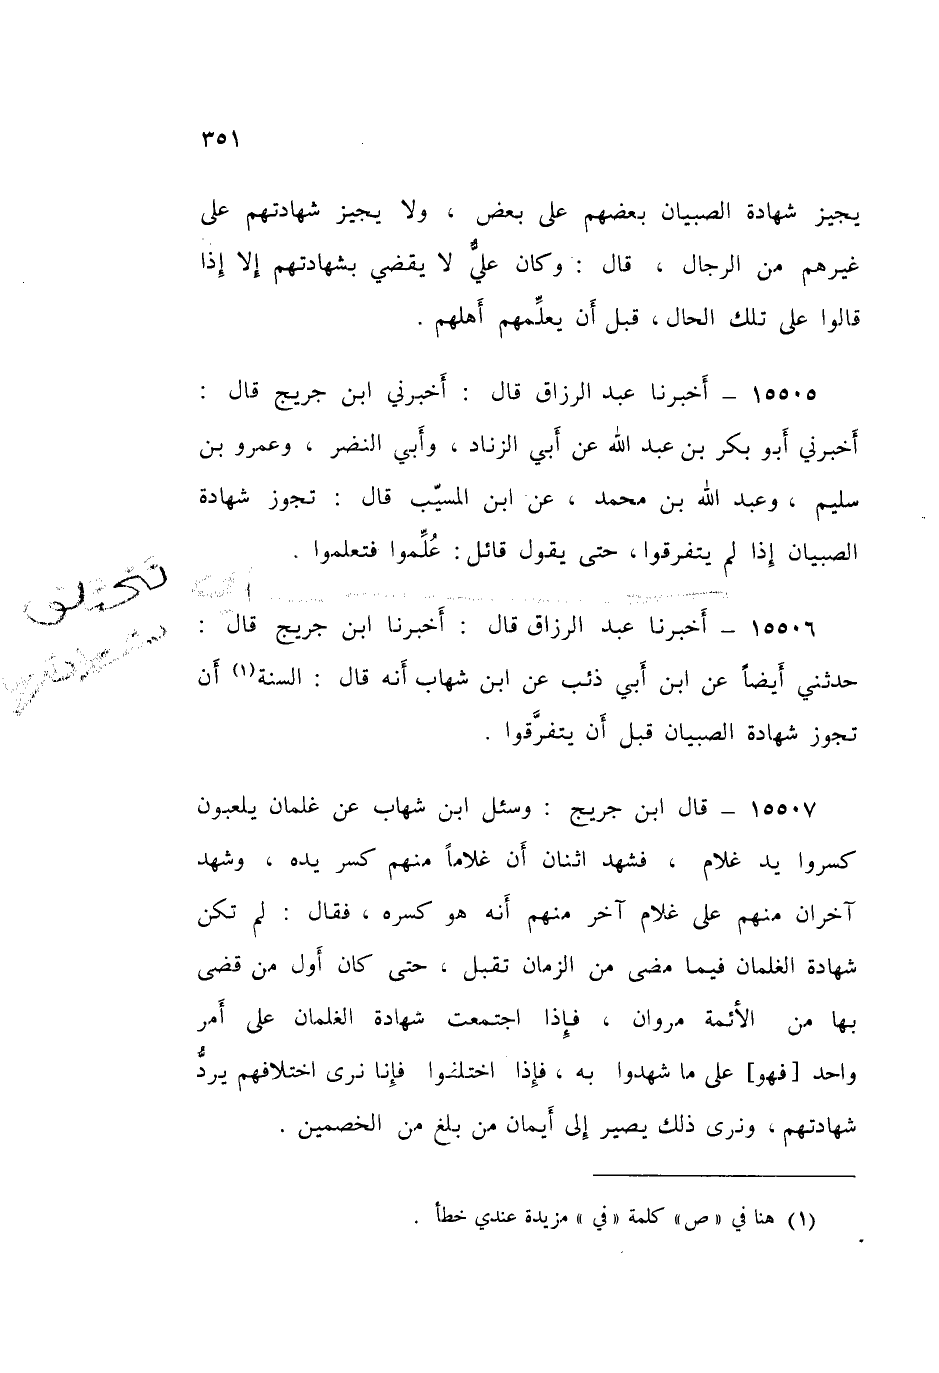 ٣٥١
يجيز شهادة الصبيان بعضهم على بعض ، ولا يجيز شهادتهم على
غيرهم من الرجال ، قال : وكان عليٌّ لا يقضي بشهادتهم إلا إذا
قالوا على تلك الحال ، قبل أن يعلِّمهم أهلهم .
١٥٥٠٥ – أخبرنا عبد الرزاق قال : أخبرني ابن جريج قال :
أخبرني أبو بكر بن عبد الله عن أبي الزناد ، وأبي النضر ، وعمرو بن
سليم ، وعبد الله بن محمد ، عن ابن المسيّب قال : تجوز شهادة
الصبيان إذا لم يتفرقوا ، حتى يقول قائل : عُلِّموا فتعلموا .
١٥٥٠٦ – أخبرنا عبد الرزاق قال : أخبرنا ابن جريج قال :
حدثني أيضاً عن ابن أبي ذئب عن ابن شهاب أنه قال : السنة(١) أن
تجوز شهادة الصبيان قبل أن يتفرَّقوا .
١٥٥٠٧ – قال ابن جريج : وسئل ابن شهاب عن غلمان يلعبون
كسروا يد غلام ، فشهد اثنان أن غلاماً منهم كسر يده ، وشهد
آخران منهم على غلام آخر منهم أنه هو كسره ، فقال : لم تكن
شهادة الغلمان فيما مضى من الزمان تقبل ، حتى كان أول من قضى
بها من الأئمة مروان ، فإذا اجتمعت شهادة الغلمان على أمر
واحد [فهو] على ما شهدوا به ، فإذا اختلفوا فإنا نرى اختلافهم يردُّ
شهادتهم ، ونرى ذلك يصير إلى أيمان من بلغ من الخصمين .
(١) هنا في «ص» كلمة «في» مزيدة عندي خطأ .